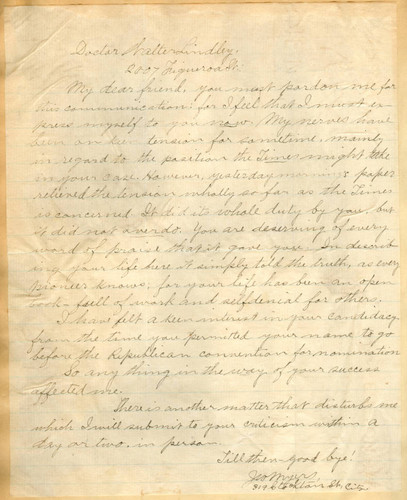 Doctor Walter Lindley.
2007 Figueroa St.
My dear friend, you must pardon me for
this communication; for I feel that I must ex-
press myself to you now. My nerves have
been on keen tension for sometime, mainly
in regard to the position the Times might take
in your case. However, yesterday morning's paper
relieved the tension wholly so far as the Times
is concerned. It did its whole duty by you, but
it did not overdo. You are deserving of every
word of praise that it gave you. In describ-
ing your life here it simply told the truth, as every
pioneer knows; for your life has been an open
book—full of work and selfdenial for others.
I have felt a keen interest in your candidacy
from the time you permitted your name to go
before the Republican convention for nomination
So any thing in the way of your success
affected me.
There is another matter that disturbs me
which I will submit to your criticism within a
day or two, in person.
Till then good bye!
St. City